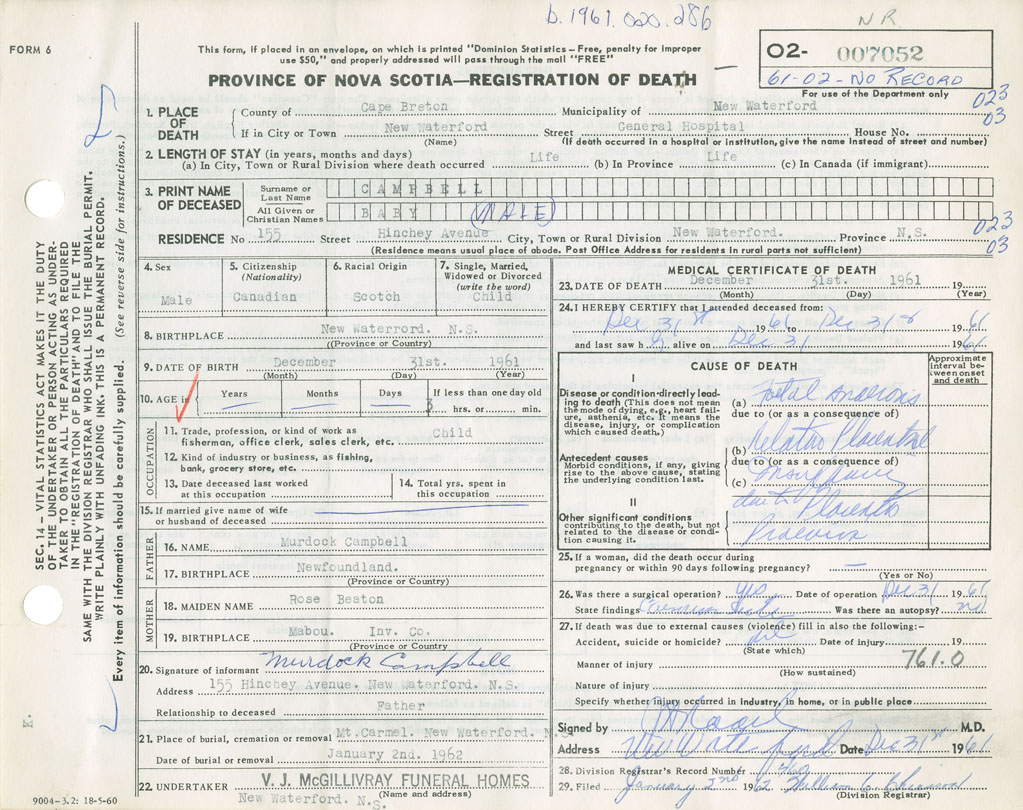 b.1961.020.286
NR
FORM 6
This form, if placed in an envelope, on which is printed "Dominion Statistics – Free, penalty for improper
use $50," and properly addressed will pass through the mail "FREE"
O2- 007052
61-02-NO RECORD
For use of the Department only
PROVINCE OF NOVA SCOTIA—REGISTRATION OF DEATH
023
03
1. PLACE OF DEATH
County of Cape Breton Municipality of New Waterford
If in City or Town New Waterford Street General Hospital House No.
(Name) (If death occurred in a hospital or institution, give the name instead of street and number)
2. LENGTH OF STAY (in years, months and days)
(a) In City, Town or Rural Division where death occurred Life (b) In Province Life (c) In Canada (if immigrant)
3. PRINT NAME OF DECEASED
Surname or Last Name CAMPBELL
All Given or Christian Names BABY (MALE)
RESIDENCE No 155 Street Hinchey Avenue City, Town or Rural Division New Waterford. Province N.S.
023
03
(Residence means usual place of abode. Post Office Address for residents in rural parts not sufficient)
4. Sex Male
5. Citizenship (Nationality) Canadian
6. Racial Origin Scotch
7. Single, Married, Widowed or Divorced (write the word) Child
8. BIRTHPLACE New Waterrord. N.S.
((Province or Country)
9. DATE OF BIRTH December 31st. 1961
(Month) (Day) (Year)
10. AGE in Years Months Days If less than one day old
3 hrs. or min.
OCCUPATION
11. Trade, profession, or kind of work as
fisherman, office clerk, sales clerk, etc. Child
12. Kind of industry or business, as fishing,
bank, grocery store, etc.
13. Date deceased last worked
at this occupation
14. Total yrs. spent in
this occupation
15. If married give name of wife
or husband of deceased
FATHER
16. NAME Murdock Campbell
17. BIRTHPLACE Newfoundland.
(Province or Country)
MOTHER
18. MAIDEN NAME Rose Beaton
19. BIRTHPLACE Mabou. Inv. Co.
(Province or Country
20. Signature of informant Murdock Campbell
Address 155 Hinchey Avenue. New Waterford. N.S.
Relationship to deceased Father
21. Place of burial, cremation or removal Mt.Carmel. New Waterford. N.S.
Date of burial or removal January 2nd. 1962
22. UNDERTAKER V. J. McGILLIVRAY FUNERAL HOMES
New Waterford. N.S. (Name and address)
9004–3.2: 18-5-60
K.
MEDICAL CERTIFICATE OF DEATH
23. DATE OF DEATH December 31st. 1961 19
(Month) (Day) (Year)
24. I HEREBY CERTIFY that I attended deceased from:
Dec 31st 1961 to Dec 31st 1961
and last saw h alive on Dec 31 1961
CAUSE OF DEATH
Approximate
interval be-
tween onset
and death
I
Disease or condition directly lead-
ing to death (This does not mean
the mode of dying, e.g., heart fail-
ure, asthenia, etc. It means the
disease, injury, or complication
which caused death.)
(a) Foetal Anoxia
due to (or as a consequence of)
Antecedent causes
Morbid conditions, if any, giving
rise to the above cause, stating
the underlying condition last.
(b) Placental
due to (or as a consequence of)
(c)
II
Other significant conditions
contributing to the death, but not
related to the disease or condi-
tion causing it.
due to Placenta
Praevia
25. If a woman, did the death occur during
pregnancy or within 90 days following pregnancy? —
(Yes or No)
26. Was there a surgical operation? yes Date of operation Dec 31 1961
State findings Was there an autopsy? no
27. If death was due to external causes (violence) fill in also the following:–
Accident, suicide or homicide? Date of injury 19
(State which)
761.0
Manner of injury
(How sustained)
Nature of injury
Specify whether injury occurred in industry, in home, or in public place
Signed by M.D.
Address New Waterford Date Dec 31st 1961
28. Division Registrar's Record Number
29. Filed January 2nd 1962
(Division Registrar)
SEC. 14 – VITAL STATISTICS ACT MAKES IT THE DUTY
OF THE UNDERTAKER OR PERSON ACTING AS UNDER-
TAKER TO OBTAIN ALL THE PARTICULARS REQUIRED
IN THE "REGISTRATION OF DEATH" AND TO FILE THE
SAME WITH THE DIVISION REGISTRAR WHO SHALL ISSUE THE BURIAL PERMIT.
WRITE PLAINLY WITH UNFADING INK. THIS IS A PERMANENT RECORD.
Every item of information should be carefully supplied. (See reverse side for instructions.)